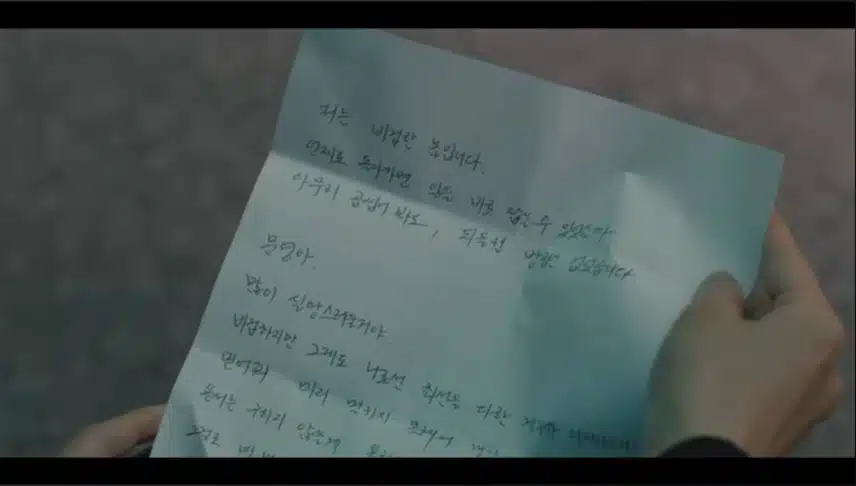 저는 비겁한 놈입니다.
언제로 돌아가면 일을 바로 잡을 수 있었을까
아무리 곱씹어 봐도, 되돌릴 방법은 없었습니다
문영아.
많이 실망스러울거야
비겁하지만 그게도 나로선 최선을 다한
믿어줘 미리 말하지 못해서
용서는 구하지 않을게
그걸로